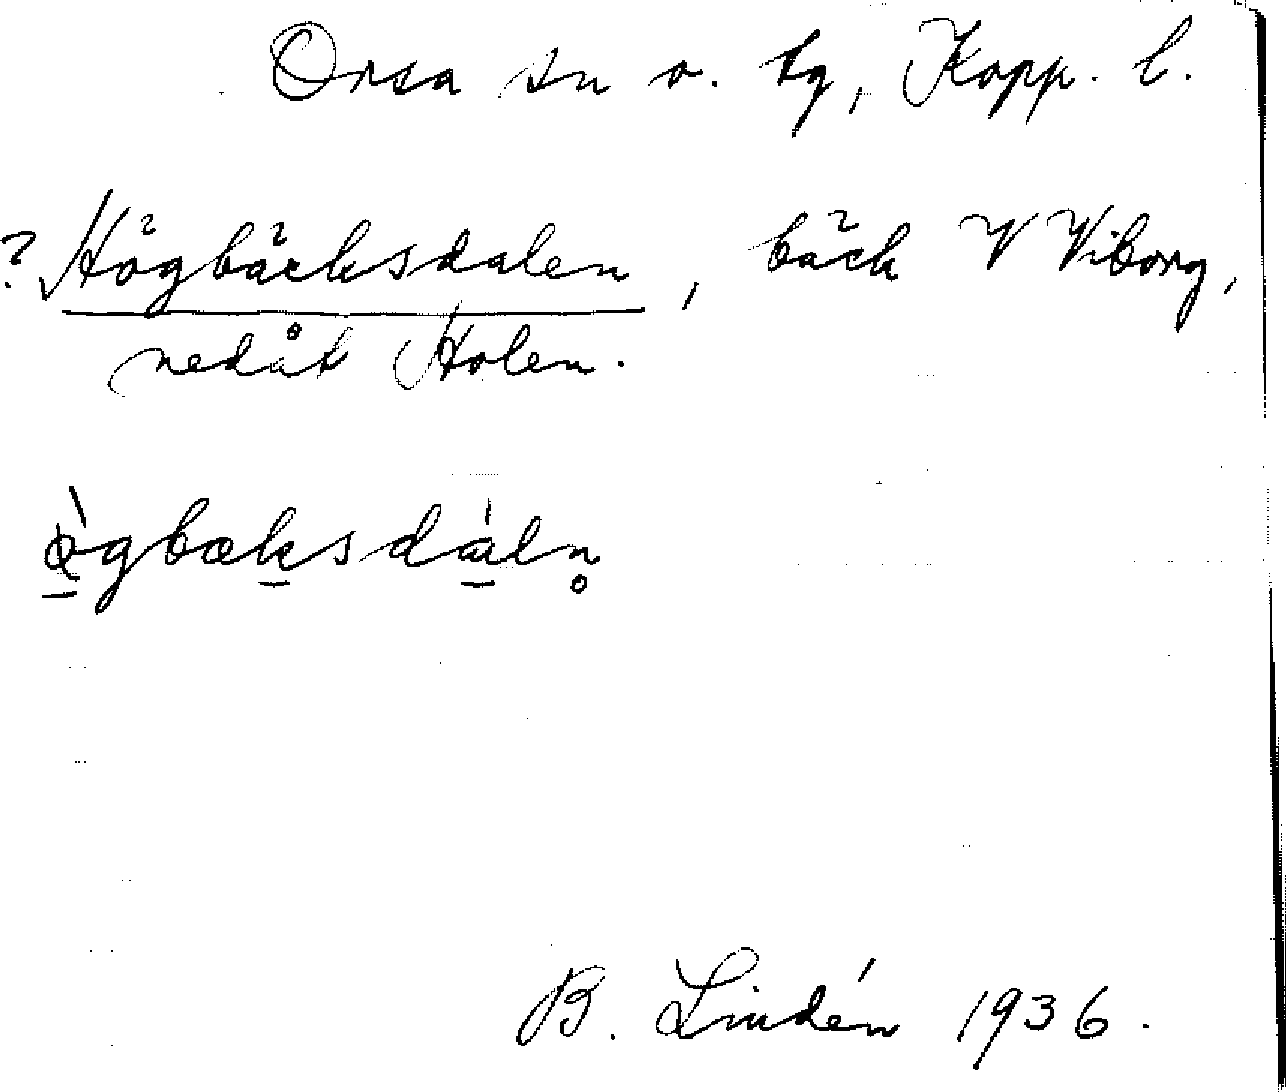 Orsa sn o. tg, Kopp. l.
? Högbäcksdalen, bäck V Viborg,
nedåt Holen.
ö̀gbæksdáln̥
B. Lindén 1936.